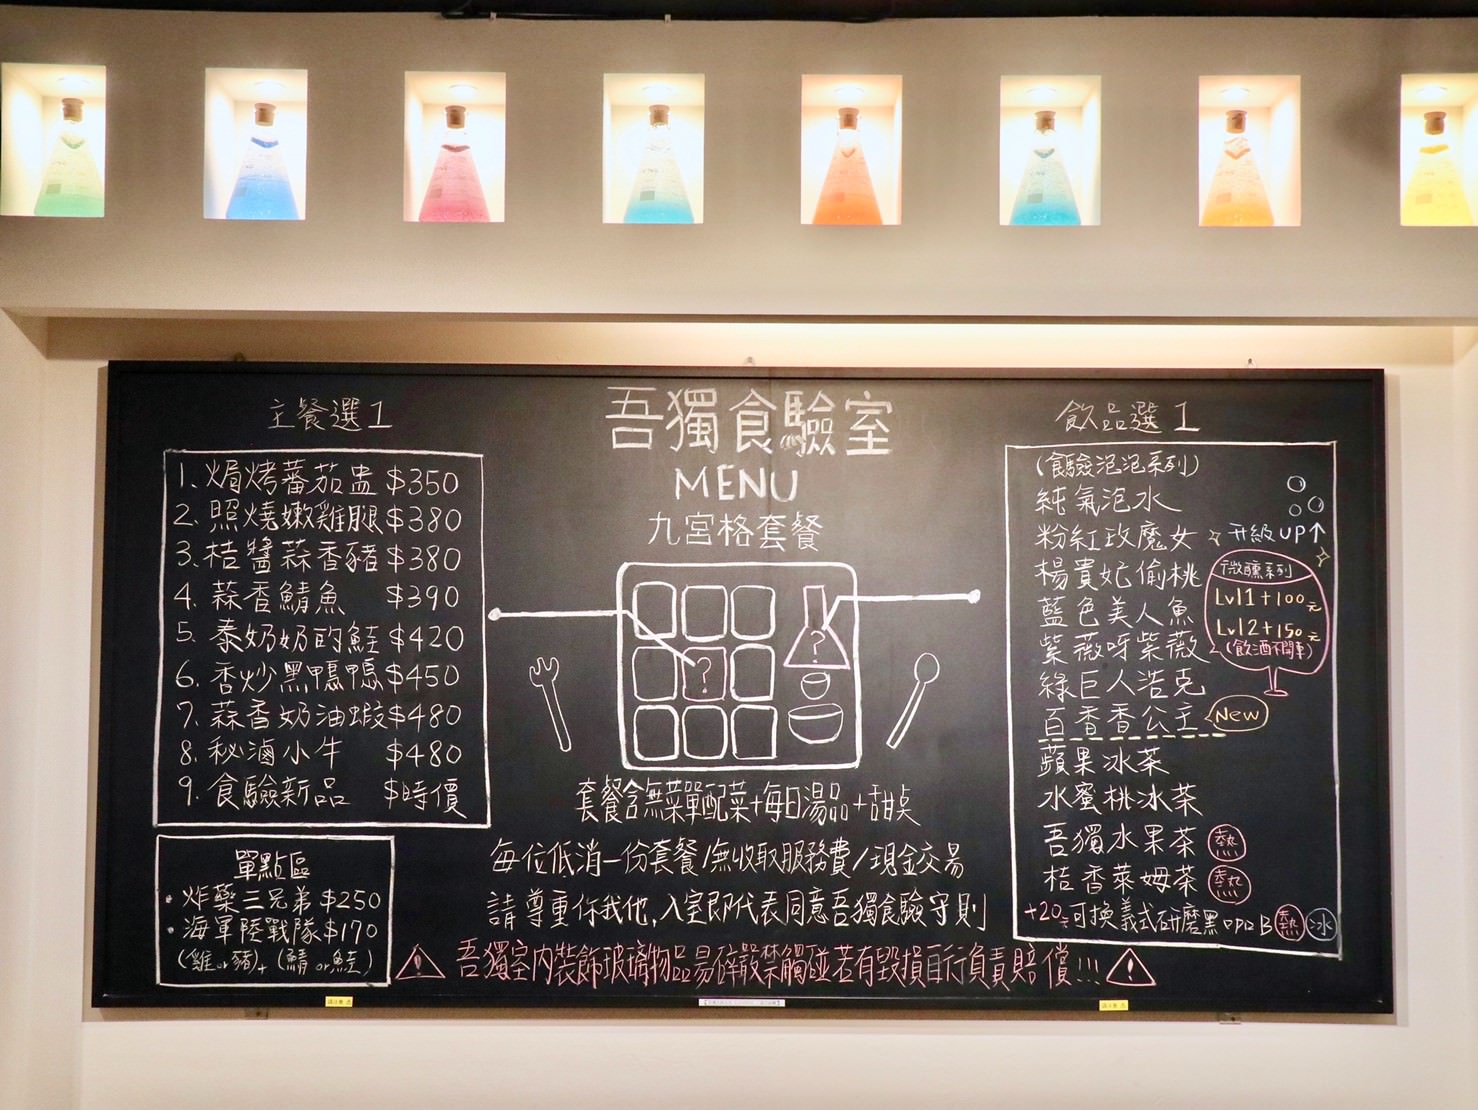 吾獨食驗室
MENU
九宮格套餐
主餐選1
1. 焗烤蕃茄盅 $350
2. 照燒嫩雞腿 $380
3. 桔醬蒜香豬 $380
4. 蒜香鯖魚 $390
5. 泰奶奶的鮭 $420
6. 香炒黑鴨鴨 $450
7. 蒜香奶油蝦 $480
8. 秘滷小牛 $480
9. 食驗新品 $時價
單點區
・炸藥三兄弟 $250
・海軍陸戰隊 $170
(雞or豬)+(鯖or鮭)
?
?
套餐含無菜單配菜+每日湯品+甜点
每位低消一份套餐/無收取服務費/現金交易
請尊重你我他,入室即代表同意吾獨食驗守則
吾獨室內裝飾玻璃物品易碎嚴禁觸碰若有毀損自行負責賠償!!!
飲品選1
(食驗泡泡系列)
純氣泡水
粉紅玫魔女
楊貴妃偷桃
藍色美人魚
紫薇呀紫薇
綠巨人浩克
百香香公主 New
升級UP↑
微醺系列
Lv11+100元
Lv12+150元
(飲酒不開車)
蘋果冰茶
水蜜桃冰茶
吾獨水果茶 熱
桔香萊姆茶 熱
+20元可換義式研磨黑咖啡 熱 冰